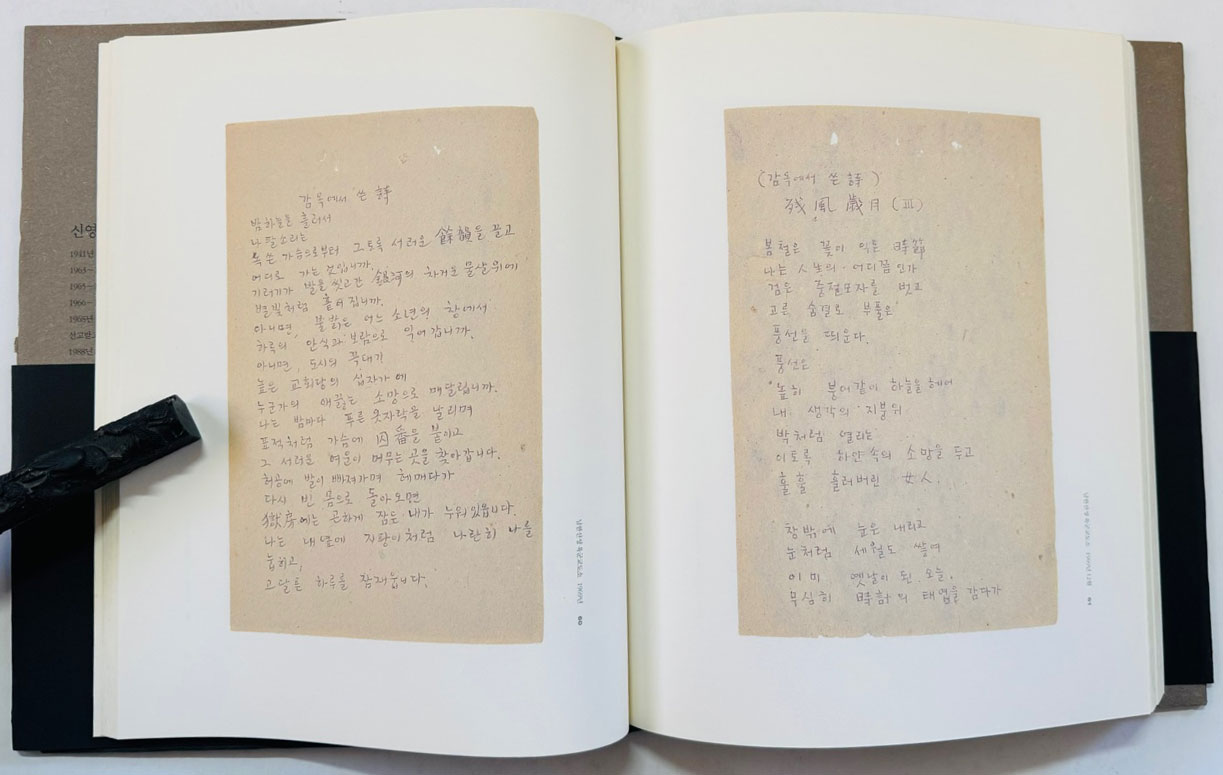 신영
1941년
1963—
1965—
1966—
1968년
선고받고
1988년
감옥에서 쓴 詩
밤하늘을 흘러서
나팔소리는
목 쉰 가슴으로부터 그토록 서러운 餘韻을 끌고
어디로 가는 것입니까.
기러기가 발을 씻고간 銀河의 차거운 물살위에
별빛처럼 흩어집니까.
아니면, 불밝은 어느 소년의 창에서
하루의 안식과 보람으로 익어갑니까.
아니면, 도시의 꼭대기
높은 교회당의 십자가에
누군가의 애끓는 소망으로 매달립니까.
나는 밤마다 푸른 옷자락을 날리며
표적처럼 가슴에 囚番을 붙이고
그 서러운 여운이 머무는 곳을 찾아갑니다.
허공에 발이 빠져가며 헤매다가
다시 빈 몸으로 돌아오면
獄房에는 곤하게 잠든 내가 누워있읍니다.
나는 내 옆에 지팡이처럼 나란히 나를
눕히고,
고달픈 하루를 잠재웁니다.
남한산성 육군교도소 1969년
60
(감옥에서 쓴 詩)
残風歲月 (III)
봄철은 꽃이 익은 時節
나는 人生의 어디쯤인가
검은 중절모자를 벗고
고른 숨결로 부풀은
풍선을 띄운다.
풍선은
높히 붕어같이 하늘을 헤어
내 생각의 지붕위
박처럼 열리는
이토록 하얀 속의 소망을 두고
훌훌 흘러버린 女人.
창밖에 눈은 내리고
눈처럼 세월도 쌓여
이미 옛날이 된 오늘.
무심히 時計의 태엽을 감다가
남한산성 육군교도소 1969년 12월
61